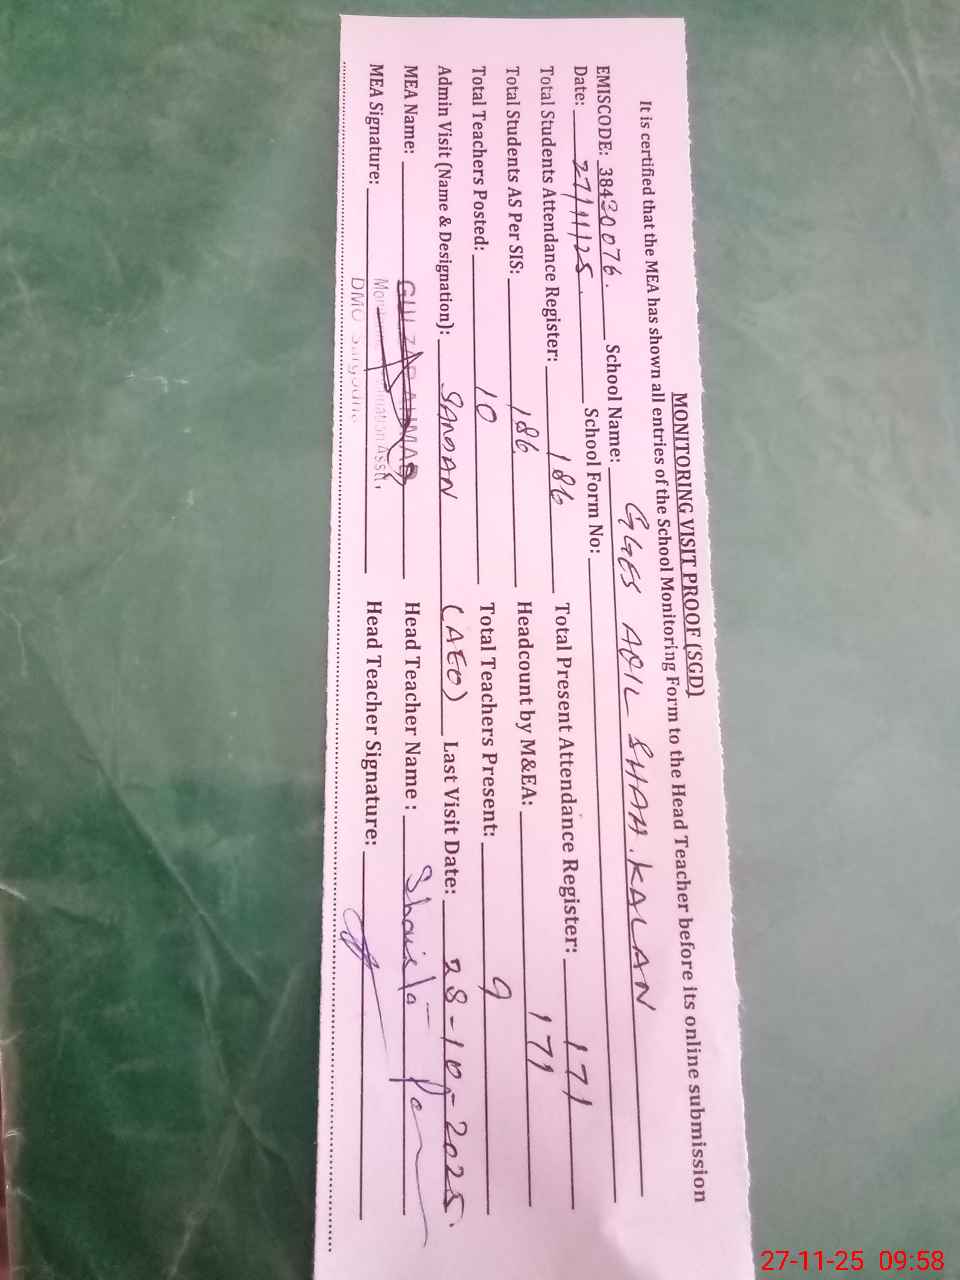 MONITORING VISIT PROOF (SGD)
It is certified that the MEA has shown all entries of the School Monitoring Form to the Head Teacher before its online submission
EMISCODE: 38420076. School Name: GGES ADIL SHAH. KALAN
Date: 27/11/25. School Form No:
Total Students Attendance Register: 186 Total Present Attendance Register: 171
Total Students AS Per SIS: 186 Headcount by M&EA: 171
Total Teachers Posted: 10 Total Teachers Present: 9
Admin Visit (Name & Designation): (AEO) Last Visit Date: 28-10-2025.
MEA Name: GULZAR AHMAD Head Teacher Name :
MEA Signature: Head Teacher Signature:
DMO Sargodha
27-11-25 09:58